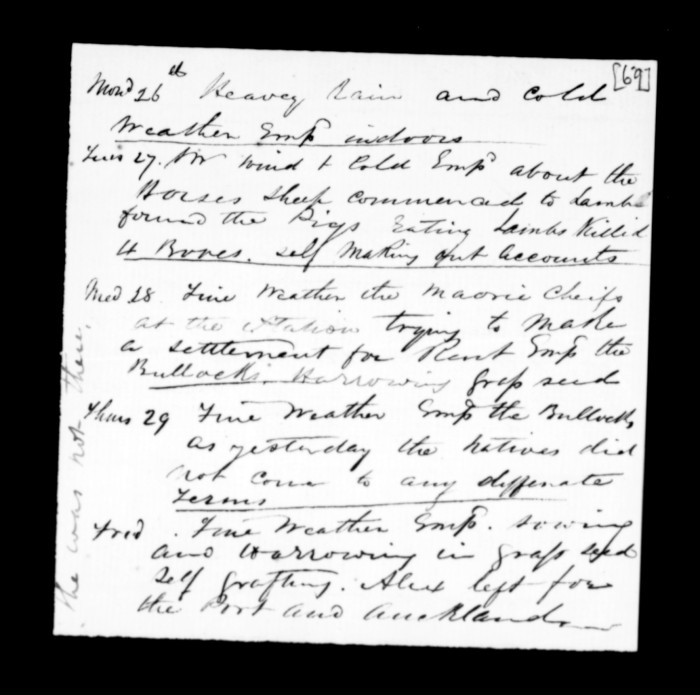 [69]
Mond 26th Heavey Rain and Cold
Weather Empd indoors
Tues 27. SW Wind & Cold Empd about the
Horses Sheep commenced to Lambs
found the Pigs Eating Lambs Killed
4 Boves. self Making out Accounts
Wed 28 Fine Weather the Maorie Cheifs
at the Station trying to Make
a settlement for Rent Empd the
Bullocks Harrowing grass seed
Thurs 29 Fine Weather Empd the Bullocks
as yesterday the Natives did
not Come to any diffenate
Terms
Frid . Fine Weather Empd. sowing
and Harrowing in grass seed
Self grafting. Alex left for
the Port and Auckland
he was not there.